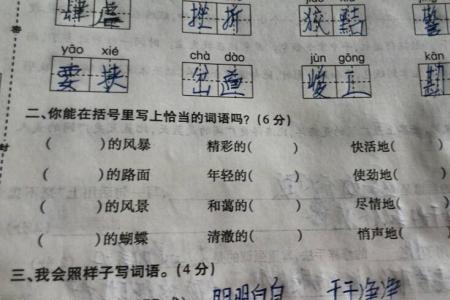 yāo xié chà dào jùn gōng kān
要 挟
二、你能在括号里写上恰当的词语吗?(6分)
( )的风暴 精彩的( ) 快活地(
( )的路面 年轻的( ) 使劲地(
( )的风景 和蔼的( ) 尽情地(
( )的蝴蝶 清澈的( ) 悄声地(
三、我会照样子写词语。(4分)
明明白白 干干净净